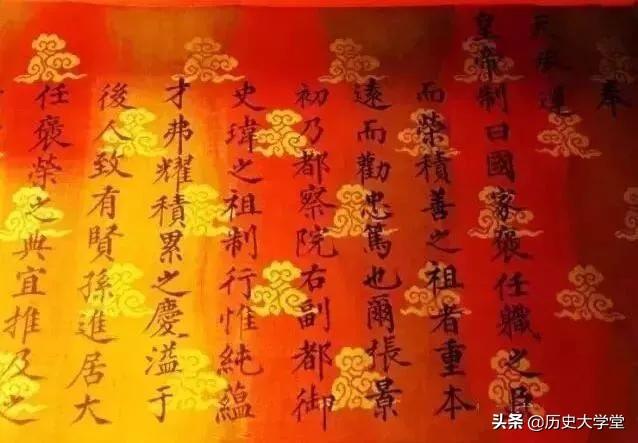 奉
天承運
皇帝制曰國家褒任職之臣
而榮積善之祖者重本
遠而勸忠篤也爾張景
初乃都察院右副都御
史瑋之祖制行惟純蘊
才弗耀積累之慶溢于
後人致有賢孫進居大
任褒榮之典宜推及之
头条 @历史大学堂